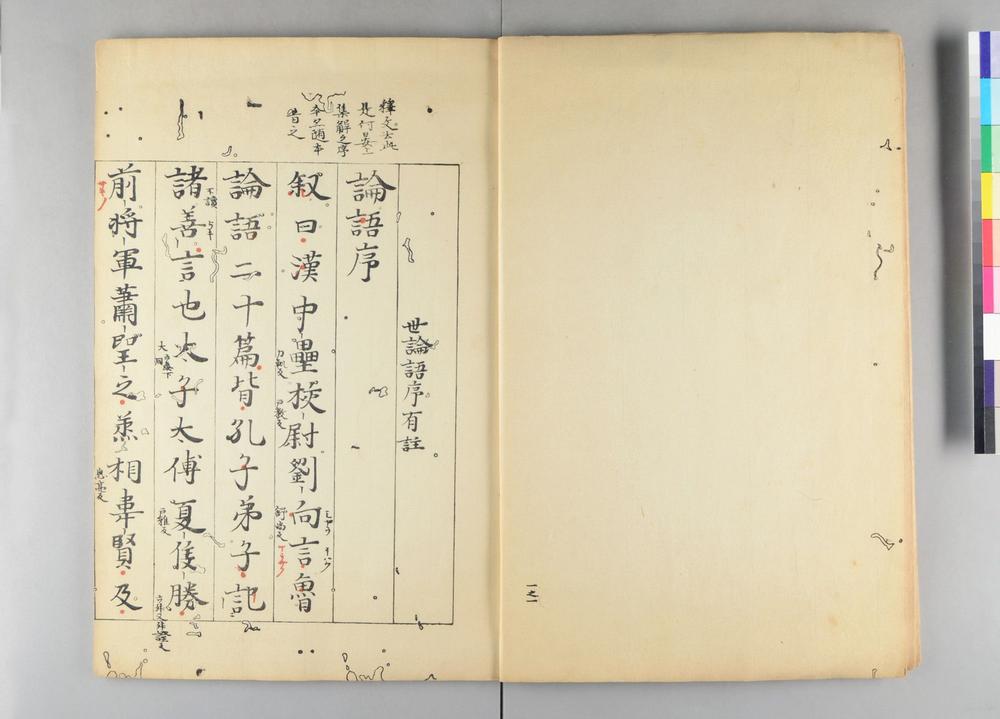 釋文云此
是何晏上
集解之序
今又随本
音之
世論語序有註
論語序
叙曰漢中壘挍尉劉向言魯
論語二十篇皆孔子弟子記
諸善言也太子太傅夏侯勝
前將軍蕭望之丞相韋賢及
一之一